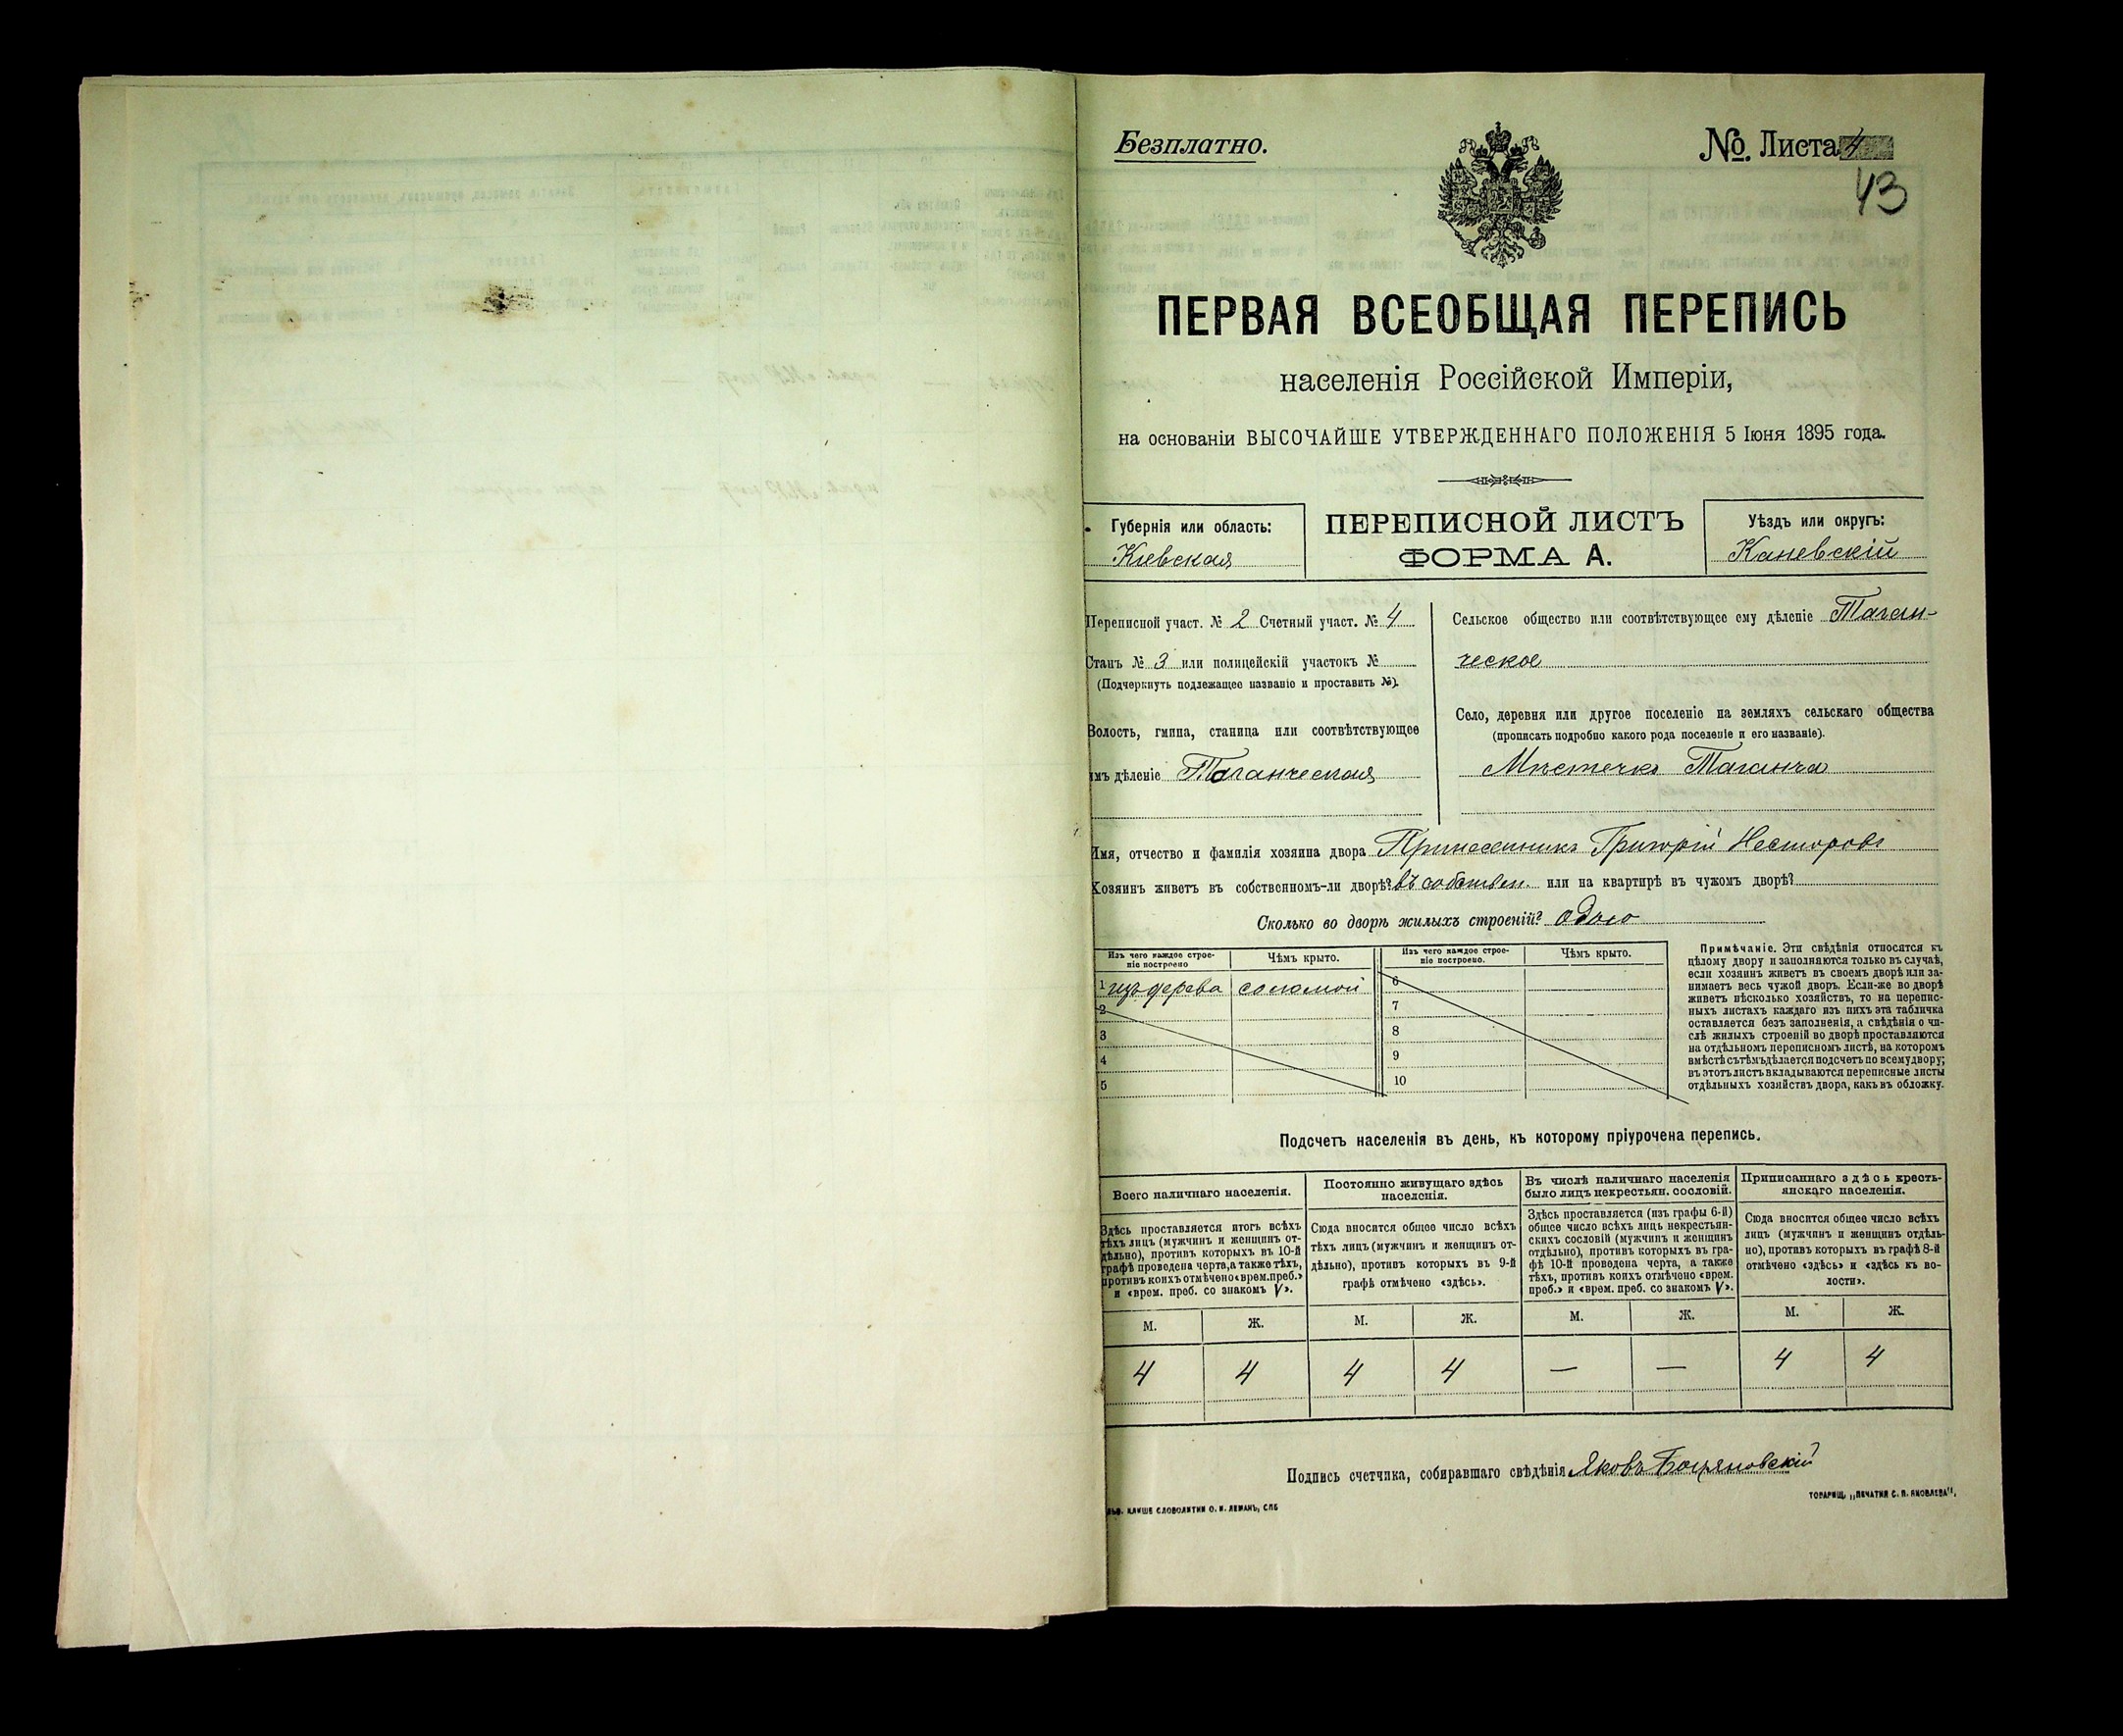 Безплатно.
№. Листа 4
43
ПЕРВАЯ ВСЕОБЩАЯ ПЕРЕПИСЬ
населенія Россійской Имперіи,
на основаніи ВЫСОЧАЙШЕ УТВЕРЖДЕННАГО ПОЛОЖЕНІЯ 5 Іюня 1895 года.
Губернія или область:
Кіевская
ПЕРЕПИСНОЙ ЛИСТЪ
ФОРМА А.
Уѣздъ или округъ:
Каневскій
Переписной участ. № 2 Счетный участ. № 4
Станъ № 3 или полицейскій участокъ №
(Подчеркнуть подлежащее названіе и проставить №).
Волость, гмина, станица или соотвѣтствующее
имъ дѣленіе Таганческая
Сельское общество или соотвѣтствующее ему дѣленіе Таган-
ческое
Село, деревня или другое поселеніе на земляхъ сельскаго общества
(прописать подробно какого рода поселеніе и его названіе).
Мѣстечко Таганча
Имя, отчество и фамилія хозяина двора Григорій Несторовъ
Хозяинъ живетъ въ собственномъ-ли дворѣ? въ собствен. или на квартирѣ въ чужомъ дворѣ?
Сколько во дворѣ жилыхъ строеній? одно
Изъ чего каждое строе-
ніе построено
Чѣмъ крыто.
Изъ чего каждое строе-
ніе построено.
Чѣмъ крыто.
1 изъ дерева соломой
2
3
4
5
6
7
8
9
10
Примѣчаніе. Эти свѣдѣнія относятся къ
цѣлому двору и заполняются только въ случаѣ,
если хозяинъ живетъ въ своемъ дворѣ или за-
нимаетъ весь чужой дворъ. Если-же во дворѣ
живетъ нѣсколько хозяйствъ, то на перепис-
ныхъ листахъ каждаго изъ нихъ эта табличка
оставляется безъ заполненія, а свѣдѣнія о чи-
слѣ жилыхъ строеній во дворѣ проставляются
на отдѣльномъ переписномъ листѣ, на которомъ
вмѣстѣ съ тѣмъ дѣлается подсчетъ по всему двору;
въ этотъ листъ вкладываются переписные листы
отдѣльныхъ хозяйствъ двора, какъ въ обложку.
Подсчетъ населенія въ день, къ которому пріурочена перепись.
Всего наличнаго населенія.
Здѣсь проставляется итогъ всѣхъ
тѣхъ лицъ (мужчинъ и женщинъ от-
дѣльно), противъ которыхъ въ 10-й
графѣ проведена черта, а также тѣхъ,
противъ коихъ отмѣчено «врем. преб.»
и «врем. преб. со знакомъ V».
Постоянно живущаго здѣсь
населенія.
Сюда вносится общее число всѣхъ
тѣхъ лицъ (мужчинъ и женщинъ от-
дѣльно), противъ которыхъ въ 9-й
графѣ отмѣчено «здѣсь».
Въ числѣ наличнаго населенія
было лицъ некрестьян. сословій.
Здѣсь проставляется (изъ графы 6-й)
общее число всѣхъ лицъ некрестьян-
скихъ сословій (мужчинъ и женщинъ
отдѣльно), противъ которыхъ въ гра-
фѣ 10-й проведена черта, а также
тѣхъ, противъ коихъ отмѣчено «врем.
преб.» и «врем. преб. со знакомъ V».
Приписаннаго здѣсь кресть-
янскаго населенія.
Сюда вносится общее число всѣхъ
лицъ (мужчинъ и женщинъ отдѣль-
но), противъ которыхъ въ графѣ 8-й
отмѣчено «здѣсь» и «здѣсь къ во-
лости».
М. Ж. М. Ж. М. Ж. М. Ж.
4 4 4 4 — — 4 4
Подпись счетчика, собиравшаго свѣдѣнія Яковъ
КЛИШЕ СЛОВОЛИТНИ О. И. ЛЕМАНЪ, СПБ
ТОВАРИЩ. „ПЕЧАТНЯ С. П. ЯКОВЛЕВА".